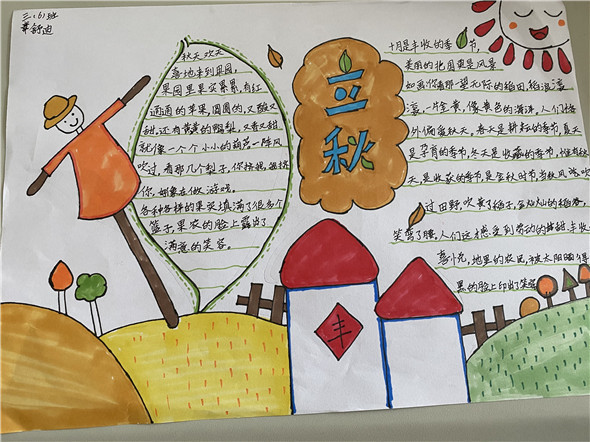 三、(6)班
秋天欢天
喜地来到果园，
果园里果实累累，有红
通通的苹果，圆圆的，又酸又
甜，还有黄黄的鸭梨，又香又甜
就像一个个小小的葫芦一阵风
吹过，看那几个梨子，你挨挨，我挤
你，好像在做游戏，
各种各样的果实填满了很多个
篮子，果农的脸上露出了
满意的笑容。
立秋
十月是丰收的季节，
美丽的把园更是风景
如画你看那一望无际的稻田，稻浪滚
滚，一片金黄，像黄色的海洋，人们格
外偏爱秋天，春天是耕耘的季节，夏天
是孕育的季节，冬天是收藏的季节，惟有秋
天是收获的季节是金秋时节当秋风
过田野，吹黄了稻子，金灿灿的稻谷，
笑弯了腰，人们这才感受到劳动的甜，丰收
喜悦，地里的农民，被太阳晒得
黑的脸上印出了笑容
丰